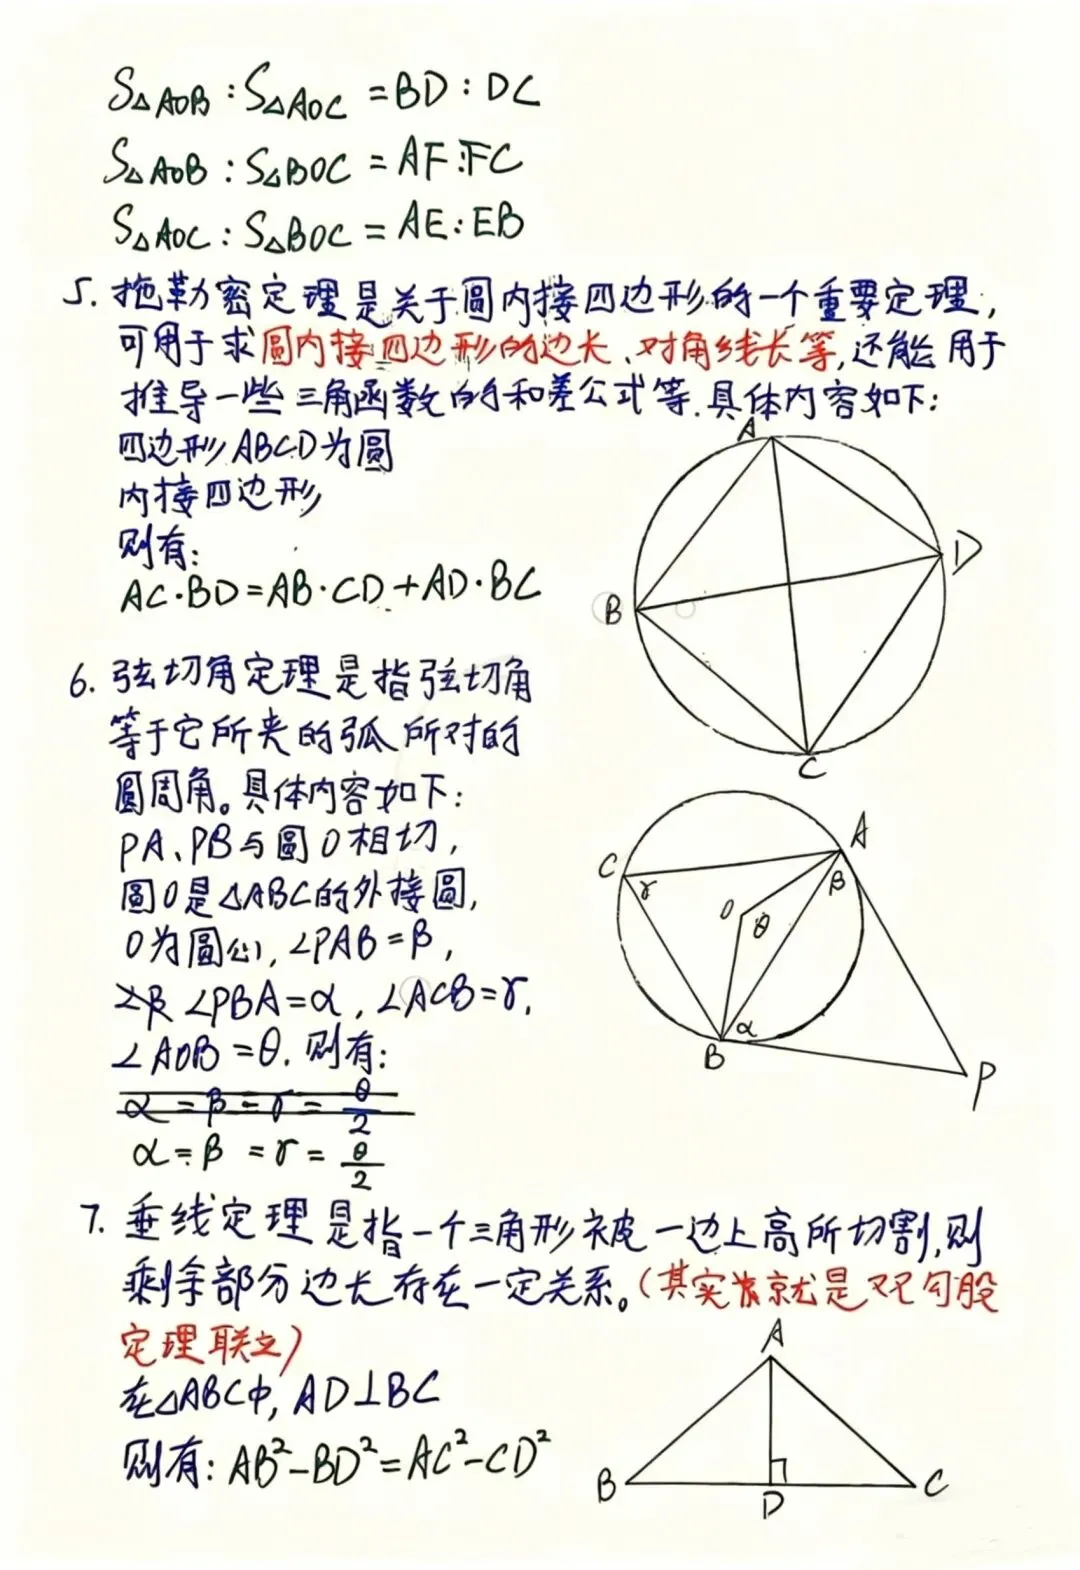 S△AOB : S△AOC = BD : DC
S△AOB : S△BOC = AF : FC
S△AOC : S△BOC = AE : EB
5. 拖勒密定理是关于圆内接四边形的一个重要定理,
可用于求圆内接四边形的边长、对角线长等,还能用于
推导一些三角函数的和差公式等.具体内容如下:
四边形ABCD为圆
内接四边形
则有:
AC·BD=AB·CD+AD·BC
A
B
D
C
6. 弦切角定理是指弦切角
等于它所夹的弧所对的
圆周角。具体内容如下:
PA、PB与圆O相切,
圆O是△ABC的外接圆,
O为圆心, ∠PAB=β,
∠PBA=α, ∠ACB=γ,
∠AOB=θ. 则有:
α=β=γ=θ/2
α=β=γ=θ/2
C
A
γ
β
O
θ
α
B
P
7. 垂线定理是指一个三角形被一边上高所切割,则
剩余部分边长存在一定关系。(其实就是双勾股
定理联立)
在△ABC中, AD⊥BC
则有: AB²-BD²=AC²-CD²
A
B
D
C